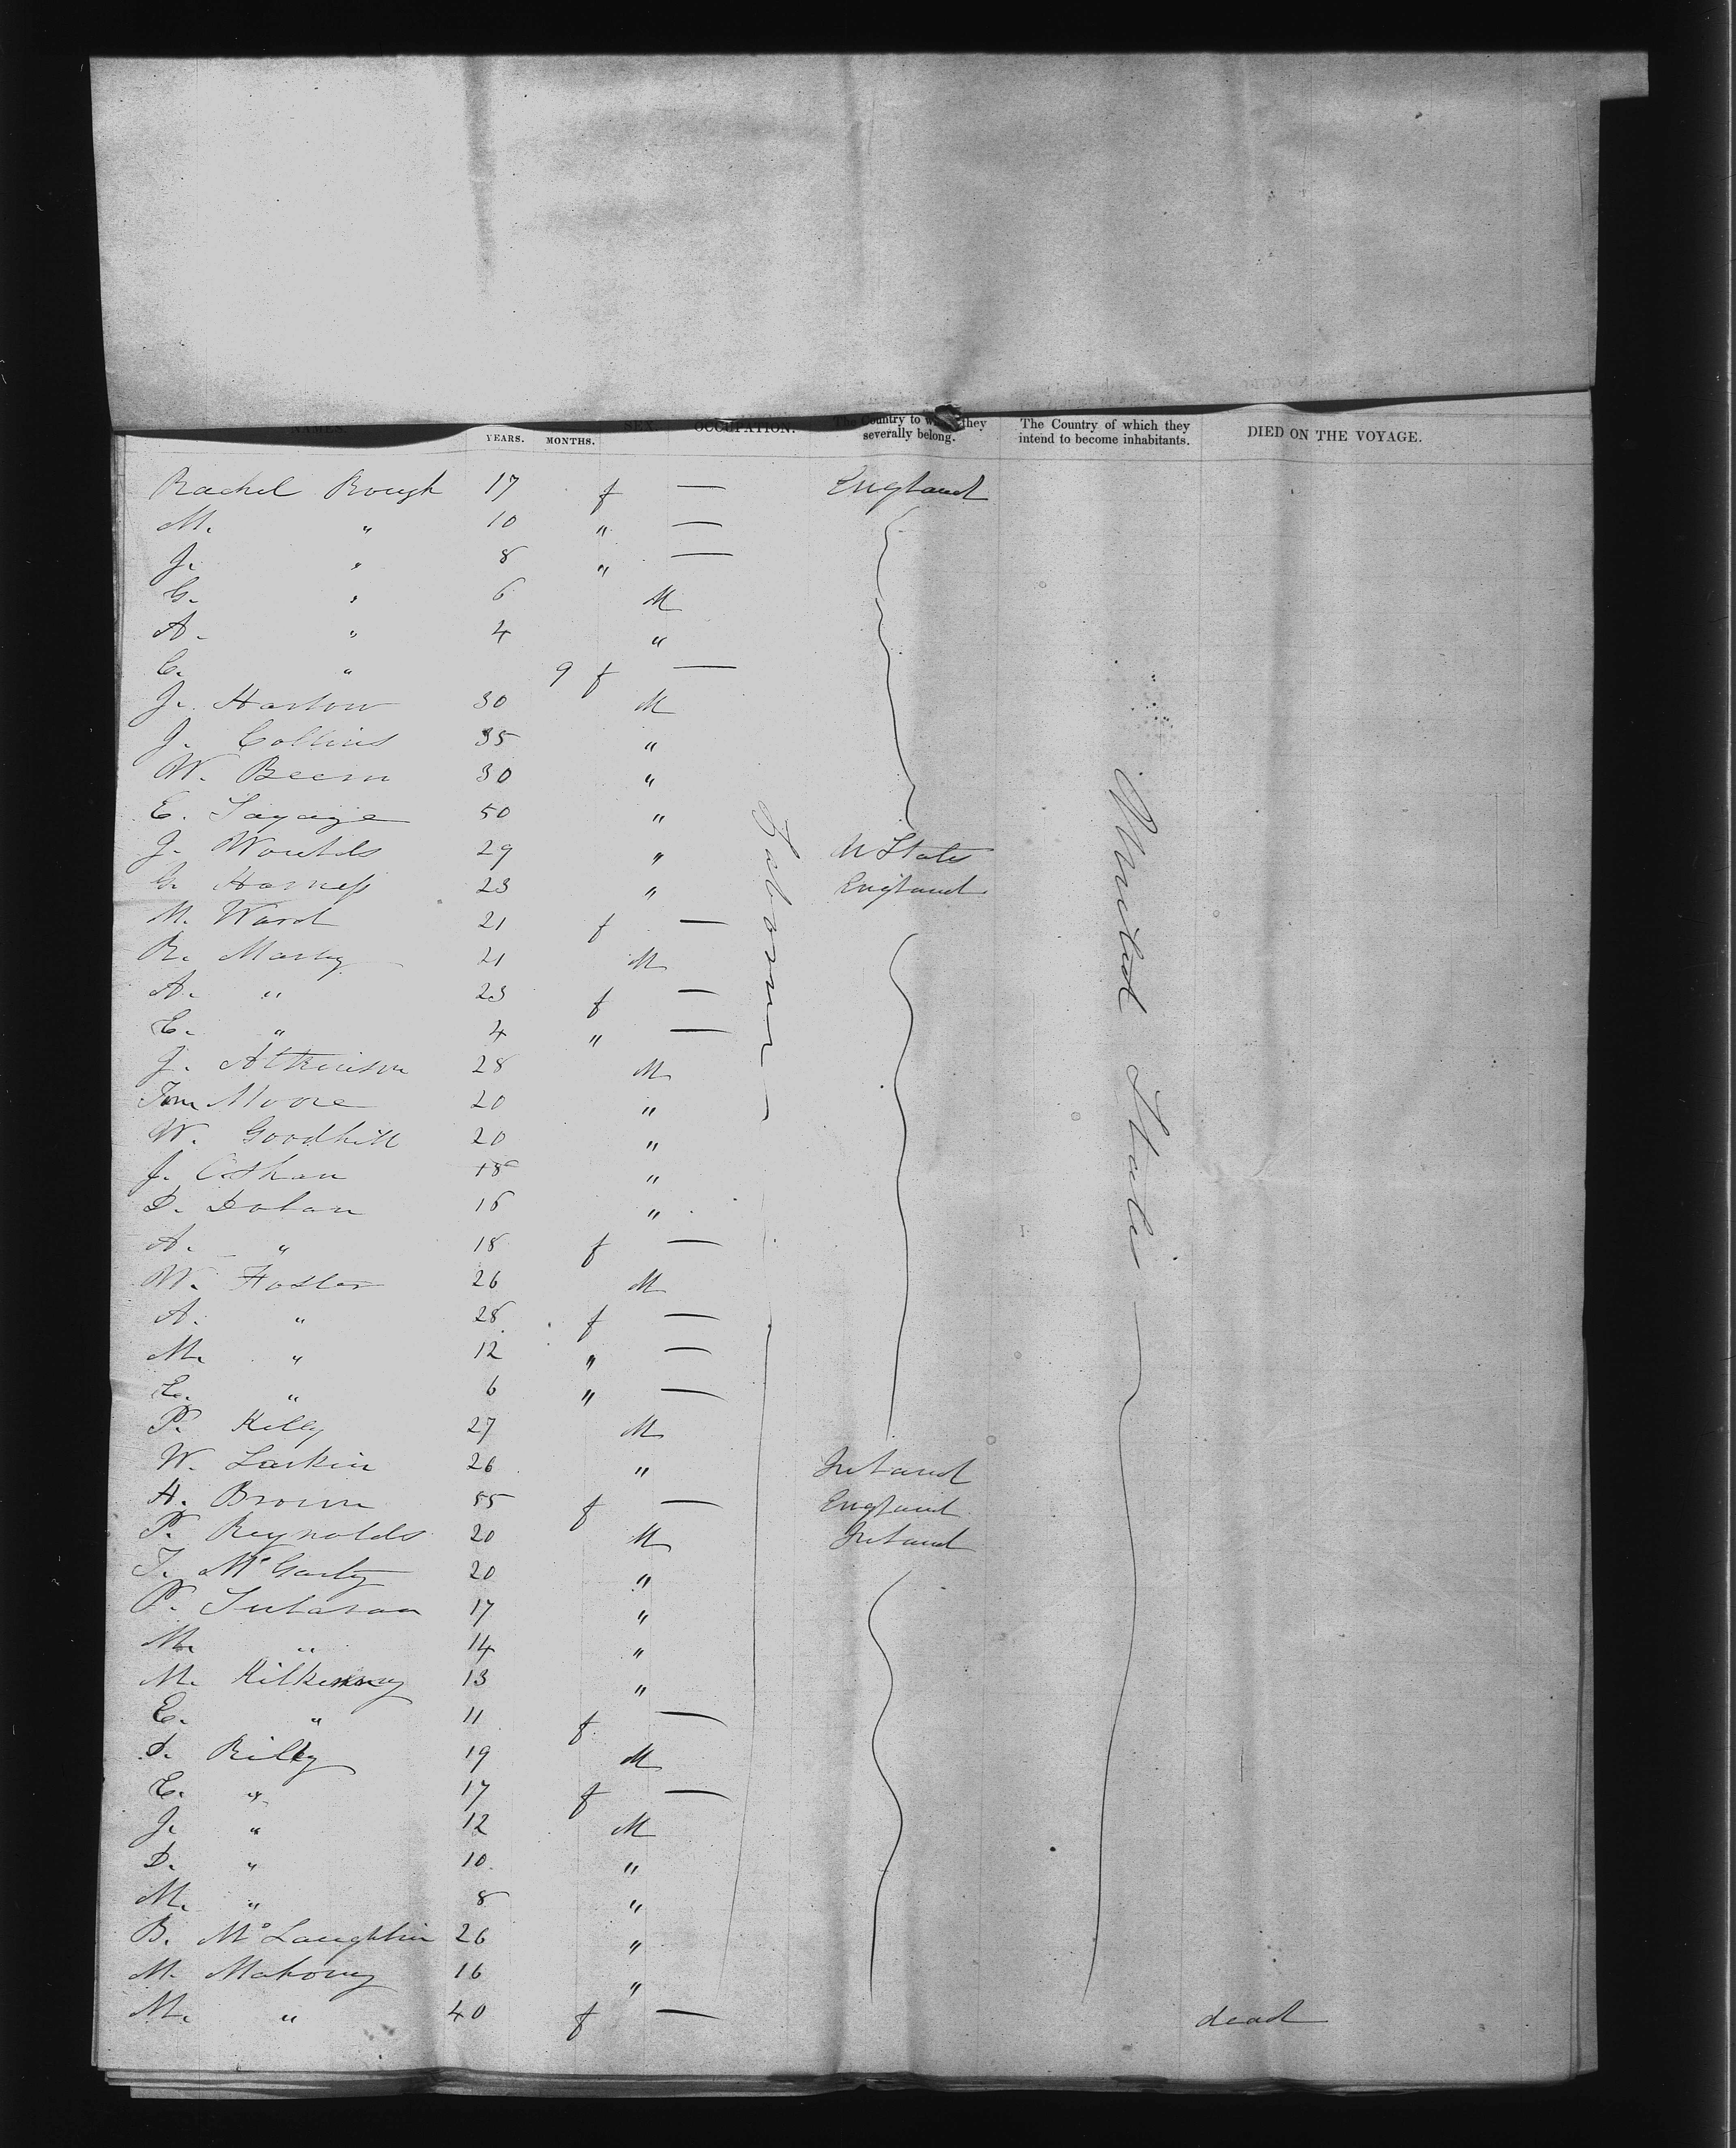 NAMES. YEARS. MONTHS. SEX. OCCUPATION. The Country to which they severally belong. The Country of which they intend to become inhabitants. DIED ON THE VOYAGE.
Rachel Rough 17 f — England
M. " 10 " —
J. " 8 " —
G. " 6 M
A. " 4 "
C. " 9 f —
J. Harlow 30 M
J. Collins 35 "
W. Beem 30 "
E. Savage 50 "
J. Woulds 29 " U States
G. Harness 23 " England
M. Ward 21 f —
R. 21 M
A. " 23 f —
E. " 4 " —
J. Atkinson 28 M
Tom Moore 20 "
W. Goodhill 20 "
J. 18 "
D. Dolan 16 "
A. " 18 f —
W. Foster 26 M
A. " 28 f —
M. " 12 " —
E. " 6 " —
P. Kelly 27 M
W. Larkin 26 " Ireland
H. Brown 55 f — England
P. Reynolds 20 M Ireland
T. McGarty 20 "
P. 17 "
M. " 14 "
M. Kilkenny 13 "
E. " 11 f —
Rilly 19 M
E. " 17 f —
J. " 12 M
D. " 10 "
M. " 8 "
B. McLaughlin 26 "
M. Mahony 16 "
M. " 40 f — dead
Laborer
United States